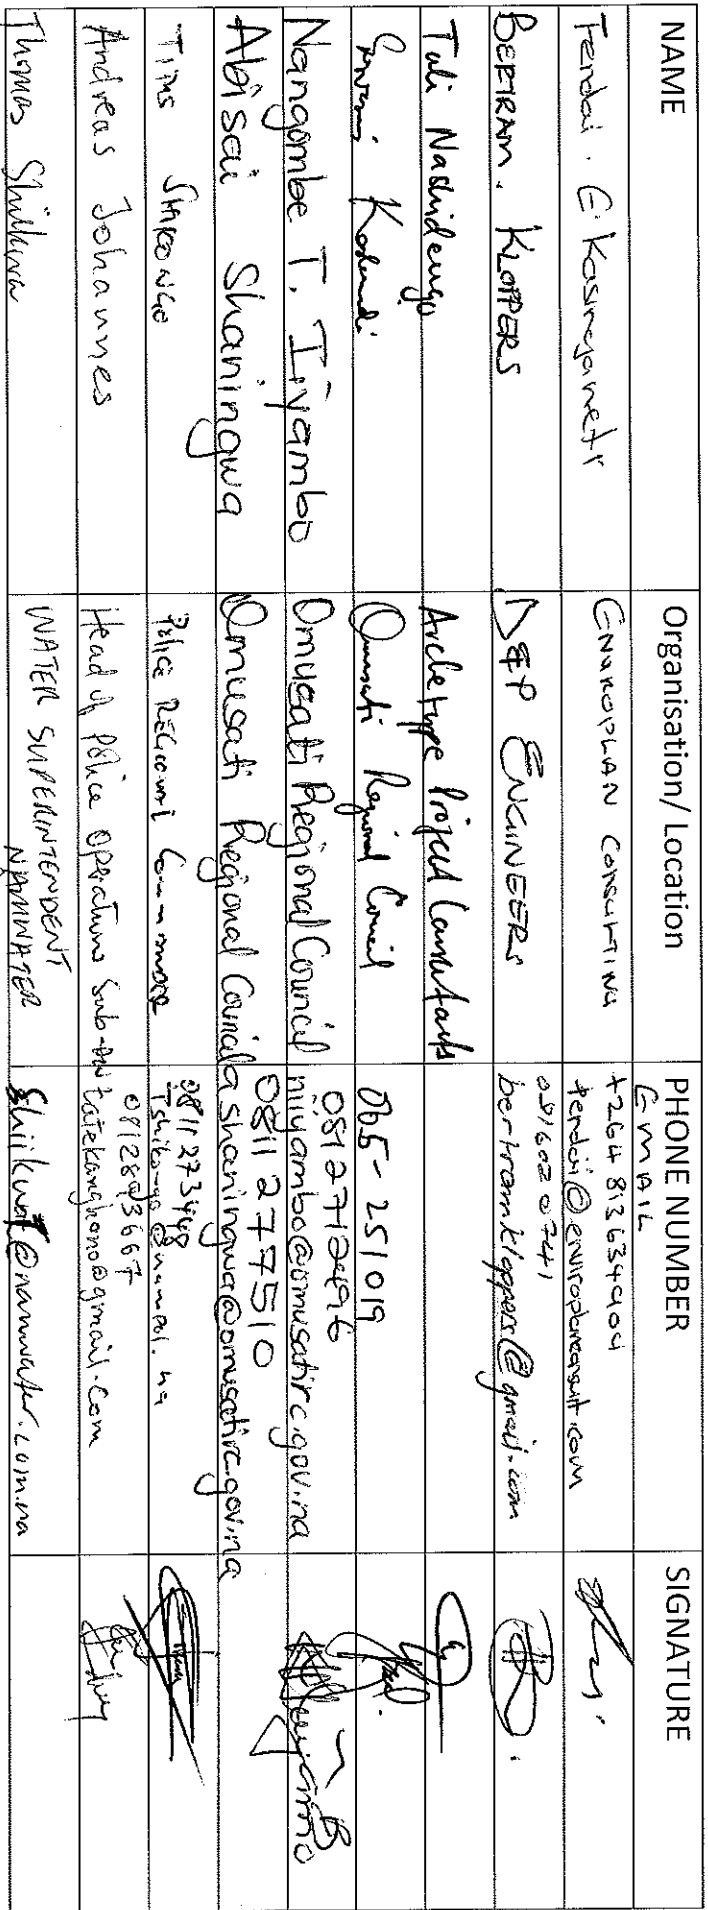 NAME Organisation/ Location PHONE NUMBER SIGNATURE
EMAIL
Tendai . E. Kasinganeti ENVIROPLAN CONSULTING +264 813634904
tendai@enviroplanconsult.com
BERTRAM. KLOPPERS D&P ENGINEERS 0816020741
bertramkloppers@gmail.com
Tuli Nashidengo Archetype Project Consultants
Omusati Regional Council 065-251019
Nangombe T. Iiyambo Omusati Regional Council 0812712496
niiyambo@omusatirc.gov.na
Abisai Shaningwa Omusati Regional Council 0811277510
ashaningwa@omusatirc.gov.na
Titus Shikongo Police Regional 0811273448
Tshikongo@nampol.na
Andreas Johannes Head of Police Operations Sub- 0812893667
tatekanghono@gmail.com
Thomas WATER SUPERINTENDENT
NAMWATER
@namwater.com.na